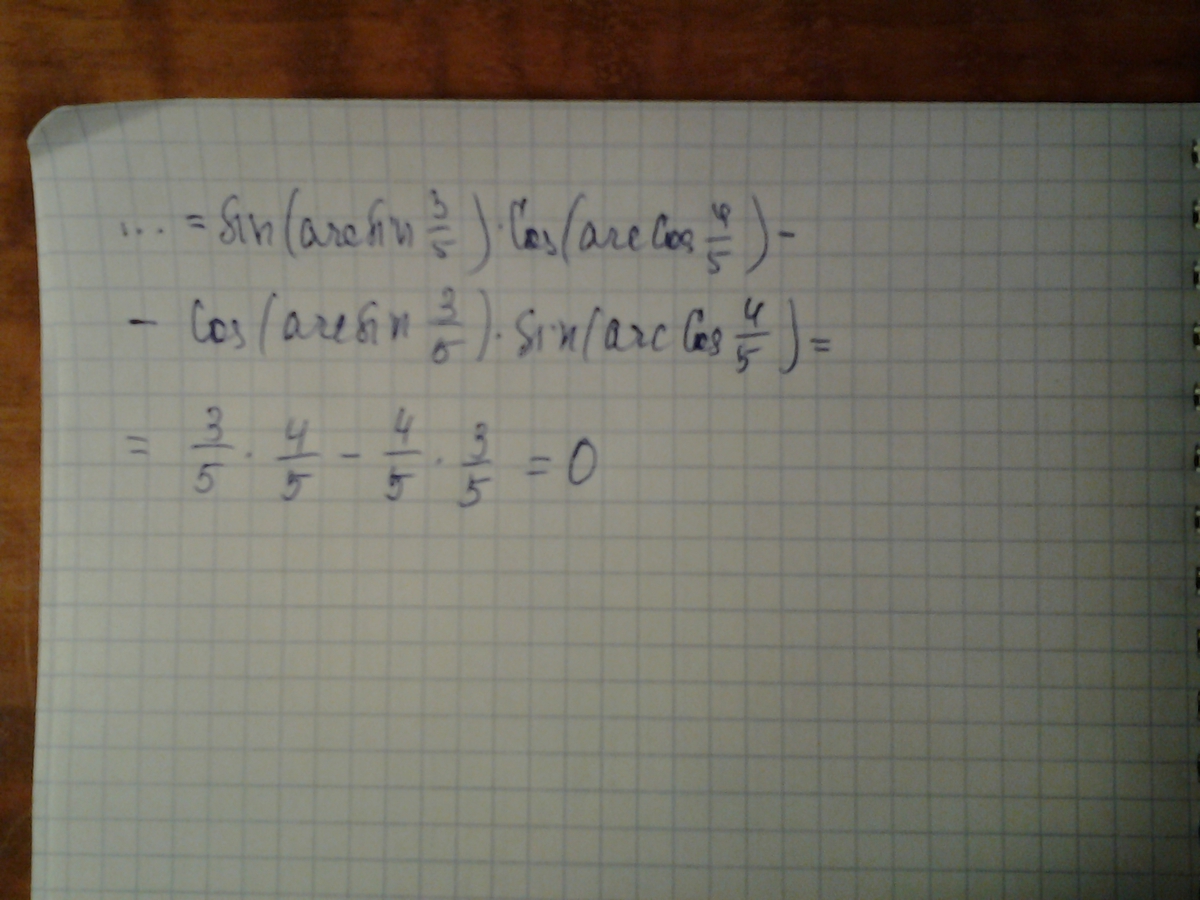 ... = Sin(arcsin 3/5) · Cos(arc Cos 4/5) -
- Cos(arcsin 3/5) · Sin(arc Cos 4/5) =
= 3/5 · 4/5 - 4/5 · 3/5 = 0